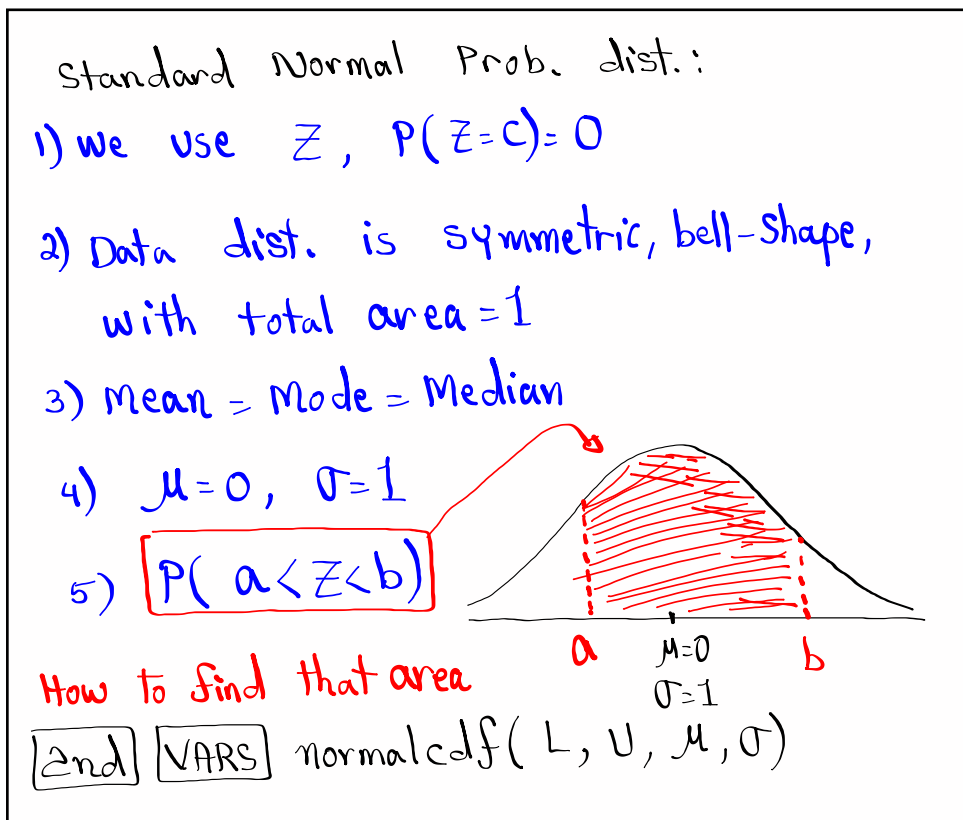 Standard Normal Prob. dist.:
1) We use Z, P(Z=C)=0
2) Data dist. is symmetric, bell-shape,
with total area=1
3) Mean = Mode = Median
4) μ=0, σ=1
5) P( a<Z<b)
a μ=0 b
σ=1
How to find that area
2nd VARS normalcdf( L, U, μ, σ)